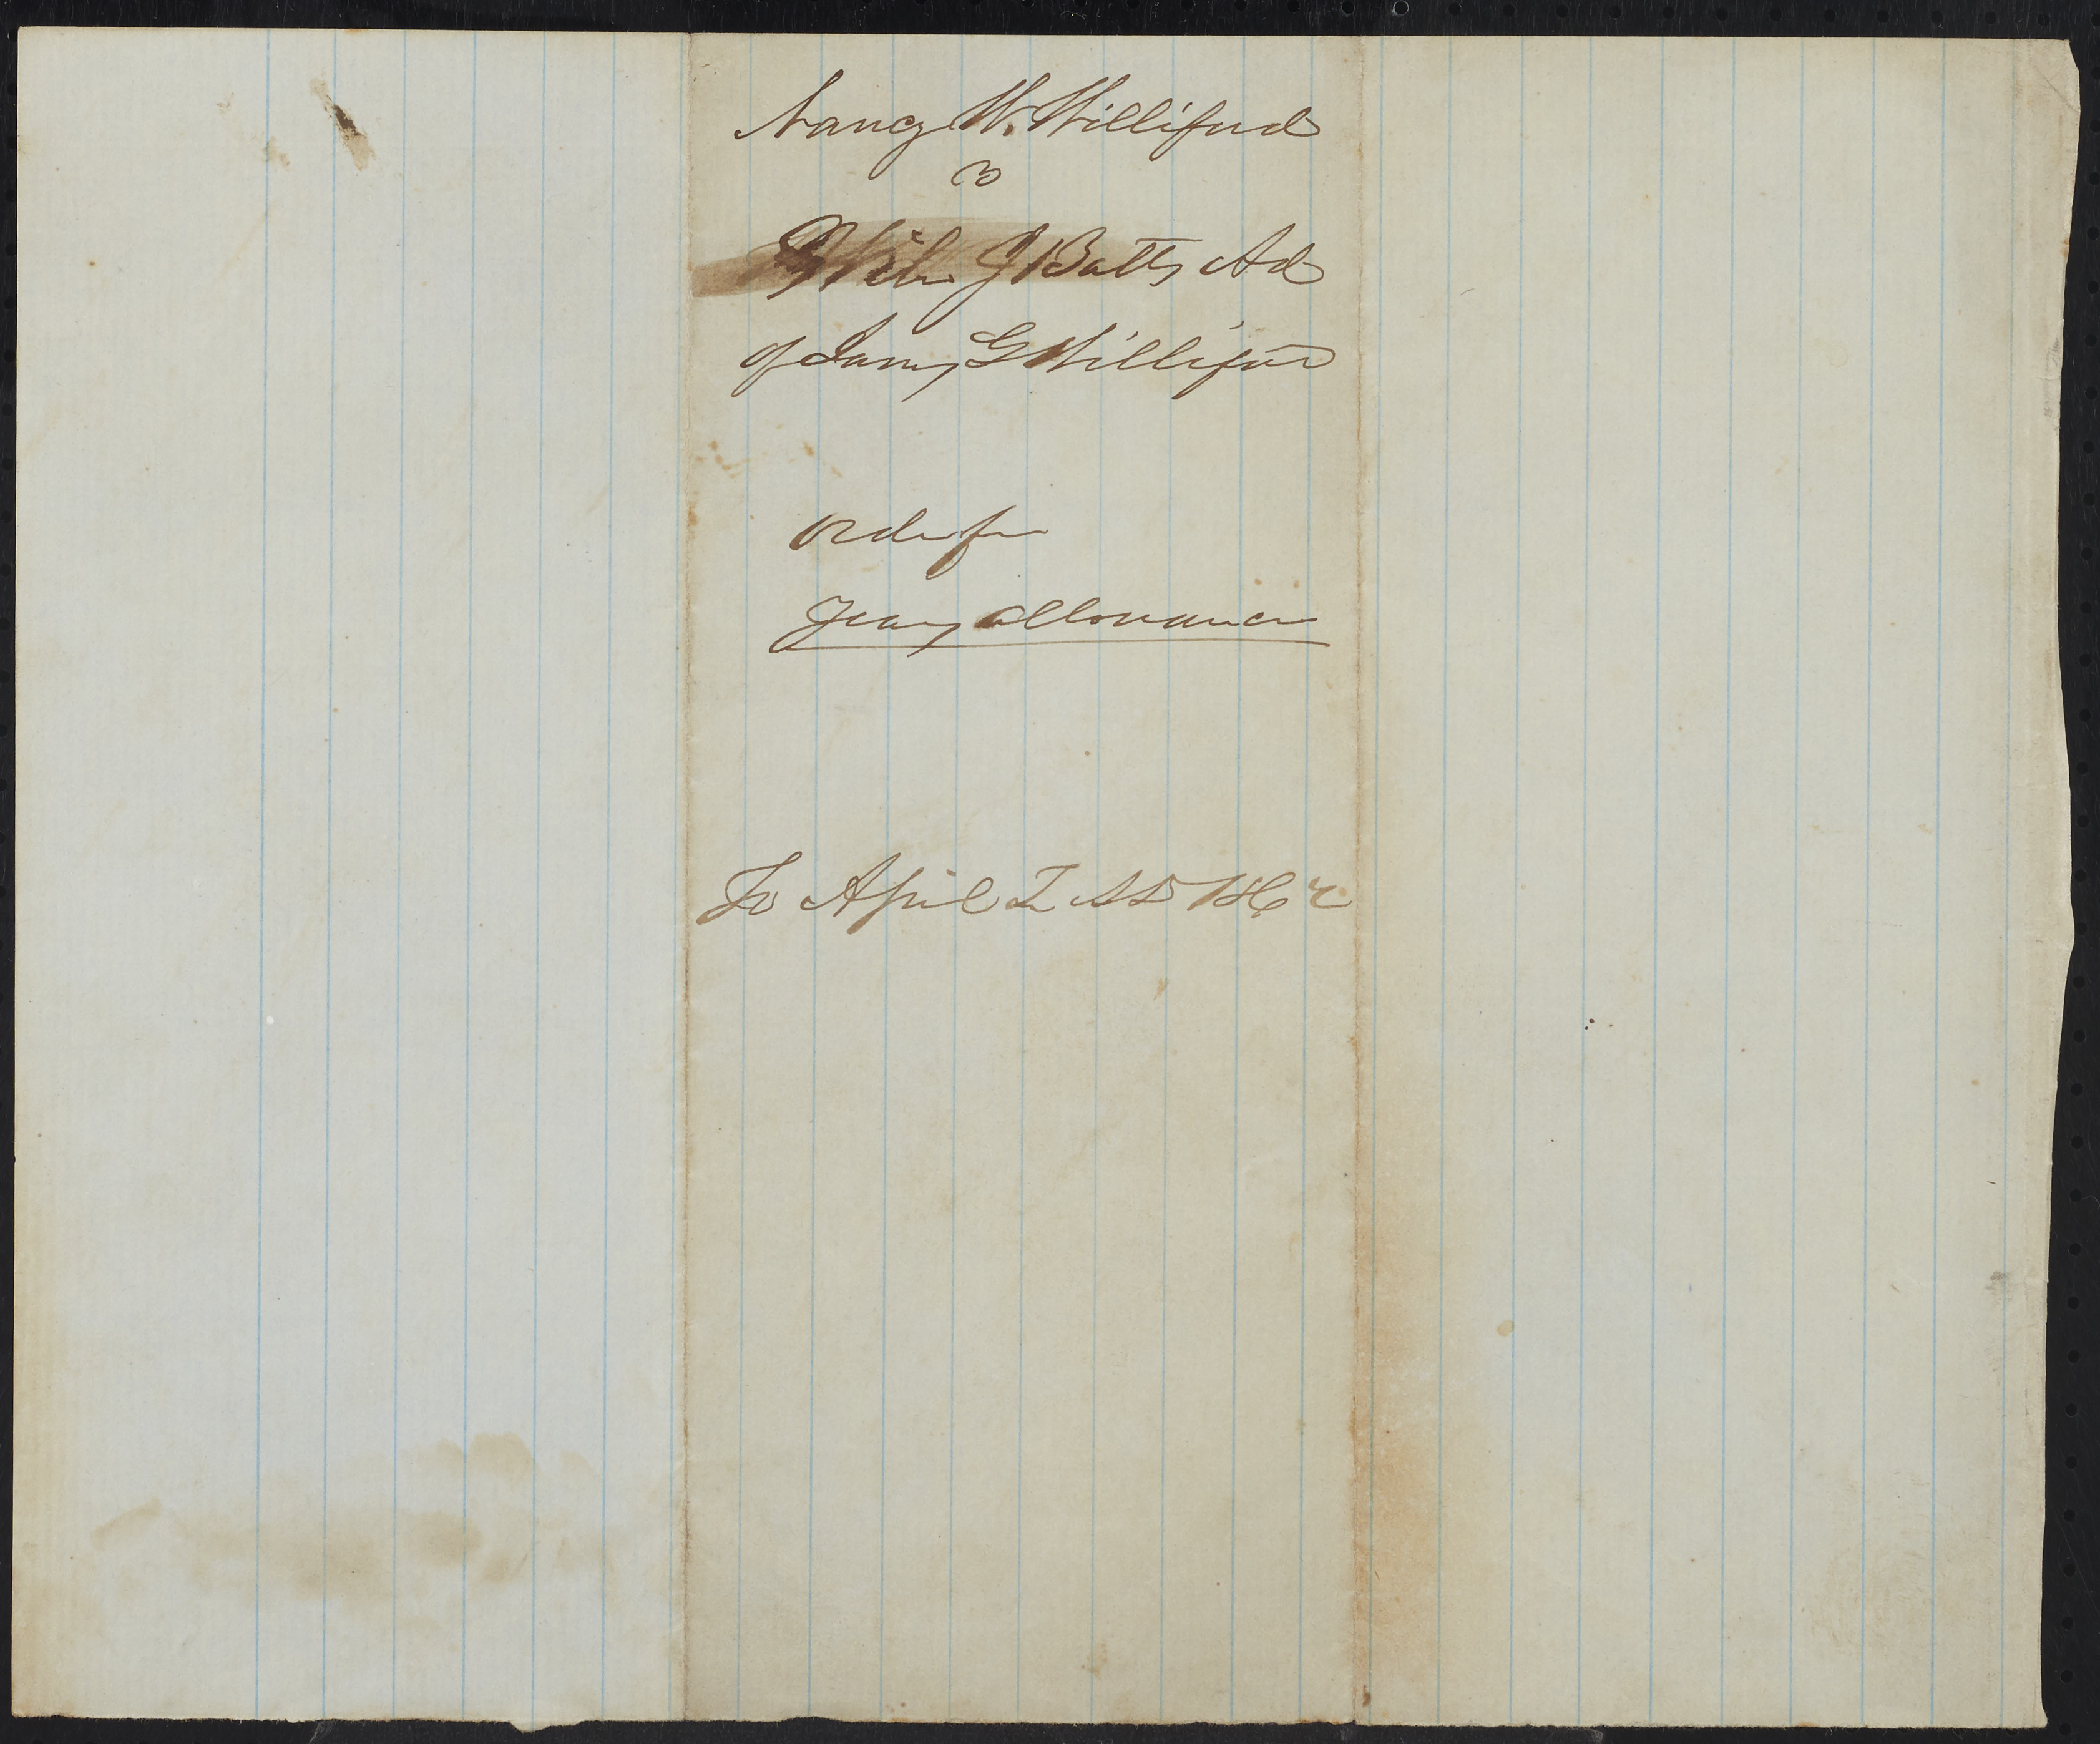 Nancy W. Williford
vs
J Batts Ad
of James G Williford
order for
Years allowance
To April T AD 1862